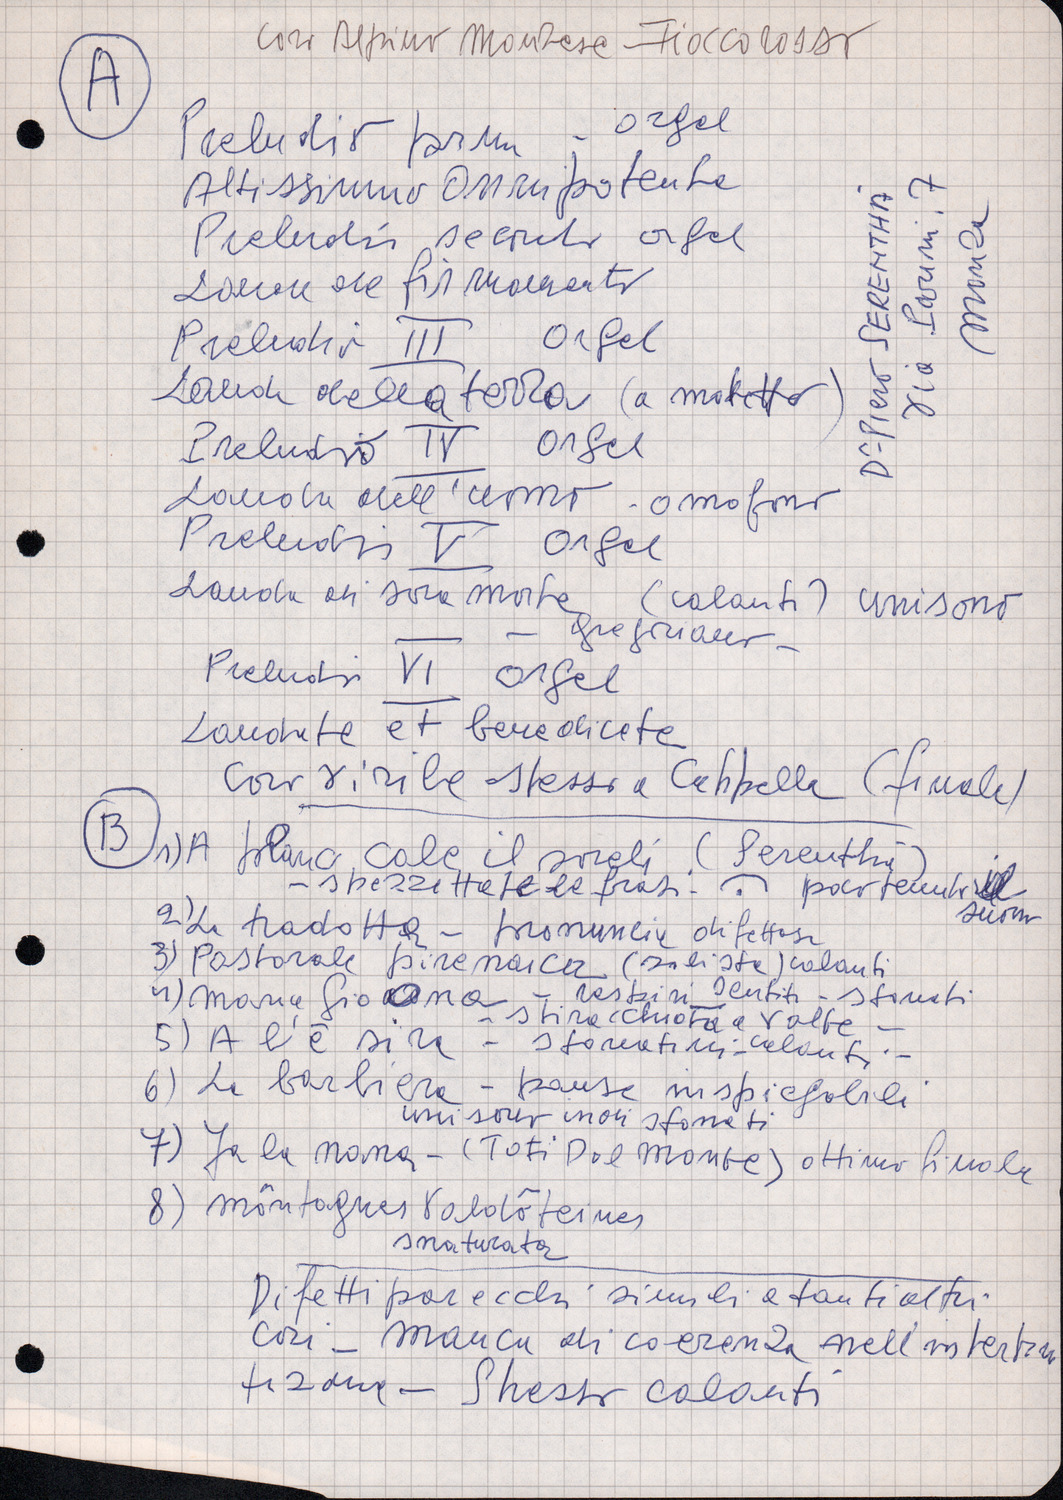 Coro Alpino Monzese - Fioccorosso
A
Preludio primo - orgel
Altissimu Onnipotente
Preludio secondo orgel
Lauda del firmamento
Preludio III orgel
Lauda della terra (a mottetto)
Preludio IV orgel
Lauda dell'uomo - omofono
Preludio V orgel
Lauda di sora morte (calanti) unisono
- gregoriano -
Preludio VI orgel
Laudate et benedicete
Coro virile stesso a Cappella (finale)
Dr. Piero SERENTHÀ
Via
Monza
B
1) A planc cale il soreli (Serenthà)
- spezzettate le frasi - portando il
suono
2) La tradotta - pronuncia difettosa
3) Pastorale pirenaica (solista) calanti
4) Maria Gioana - respiri sentiti - stonati
- stiracchiata a volte -
5) A l'è sira - stonatini - calanti -
6) La barbiera - pause inspiegabili
unisono inon stonati
7) Ja la nana - (Toti Dal Monte) ottimo finale
8) Môntagnes Valdôteines
snaturata
Difetti parecchi simili a tanti altri
cori - manca di coerenza nell'interpre
tazione - Spesso calanti